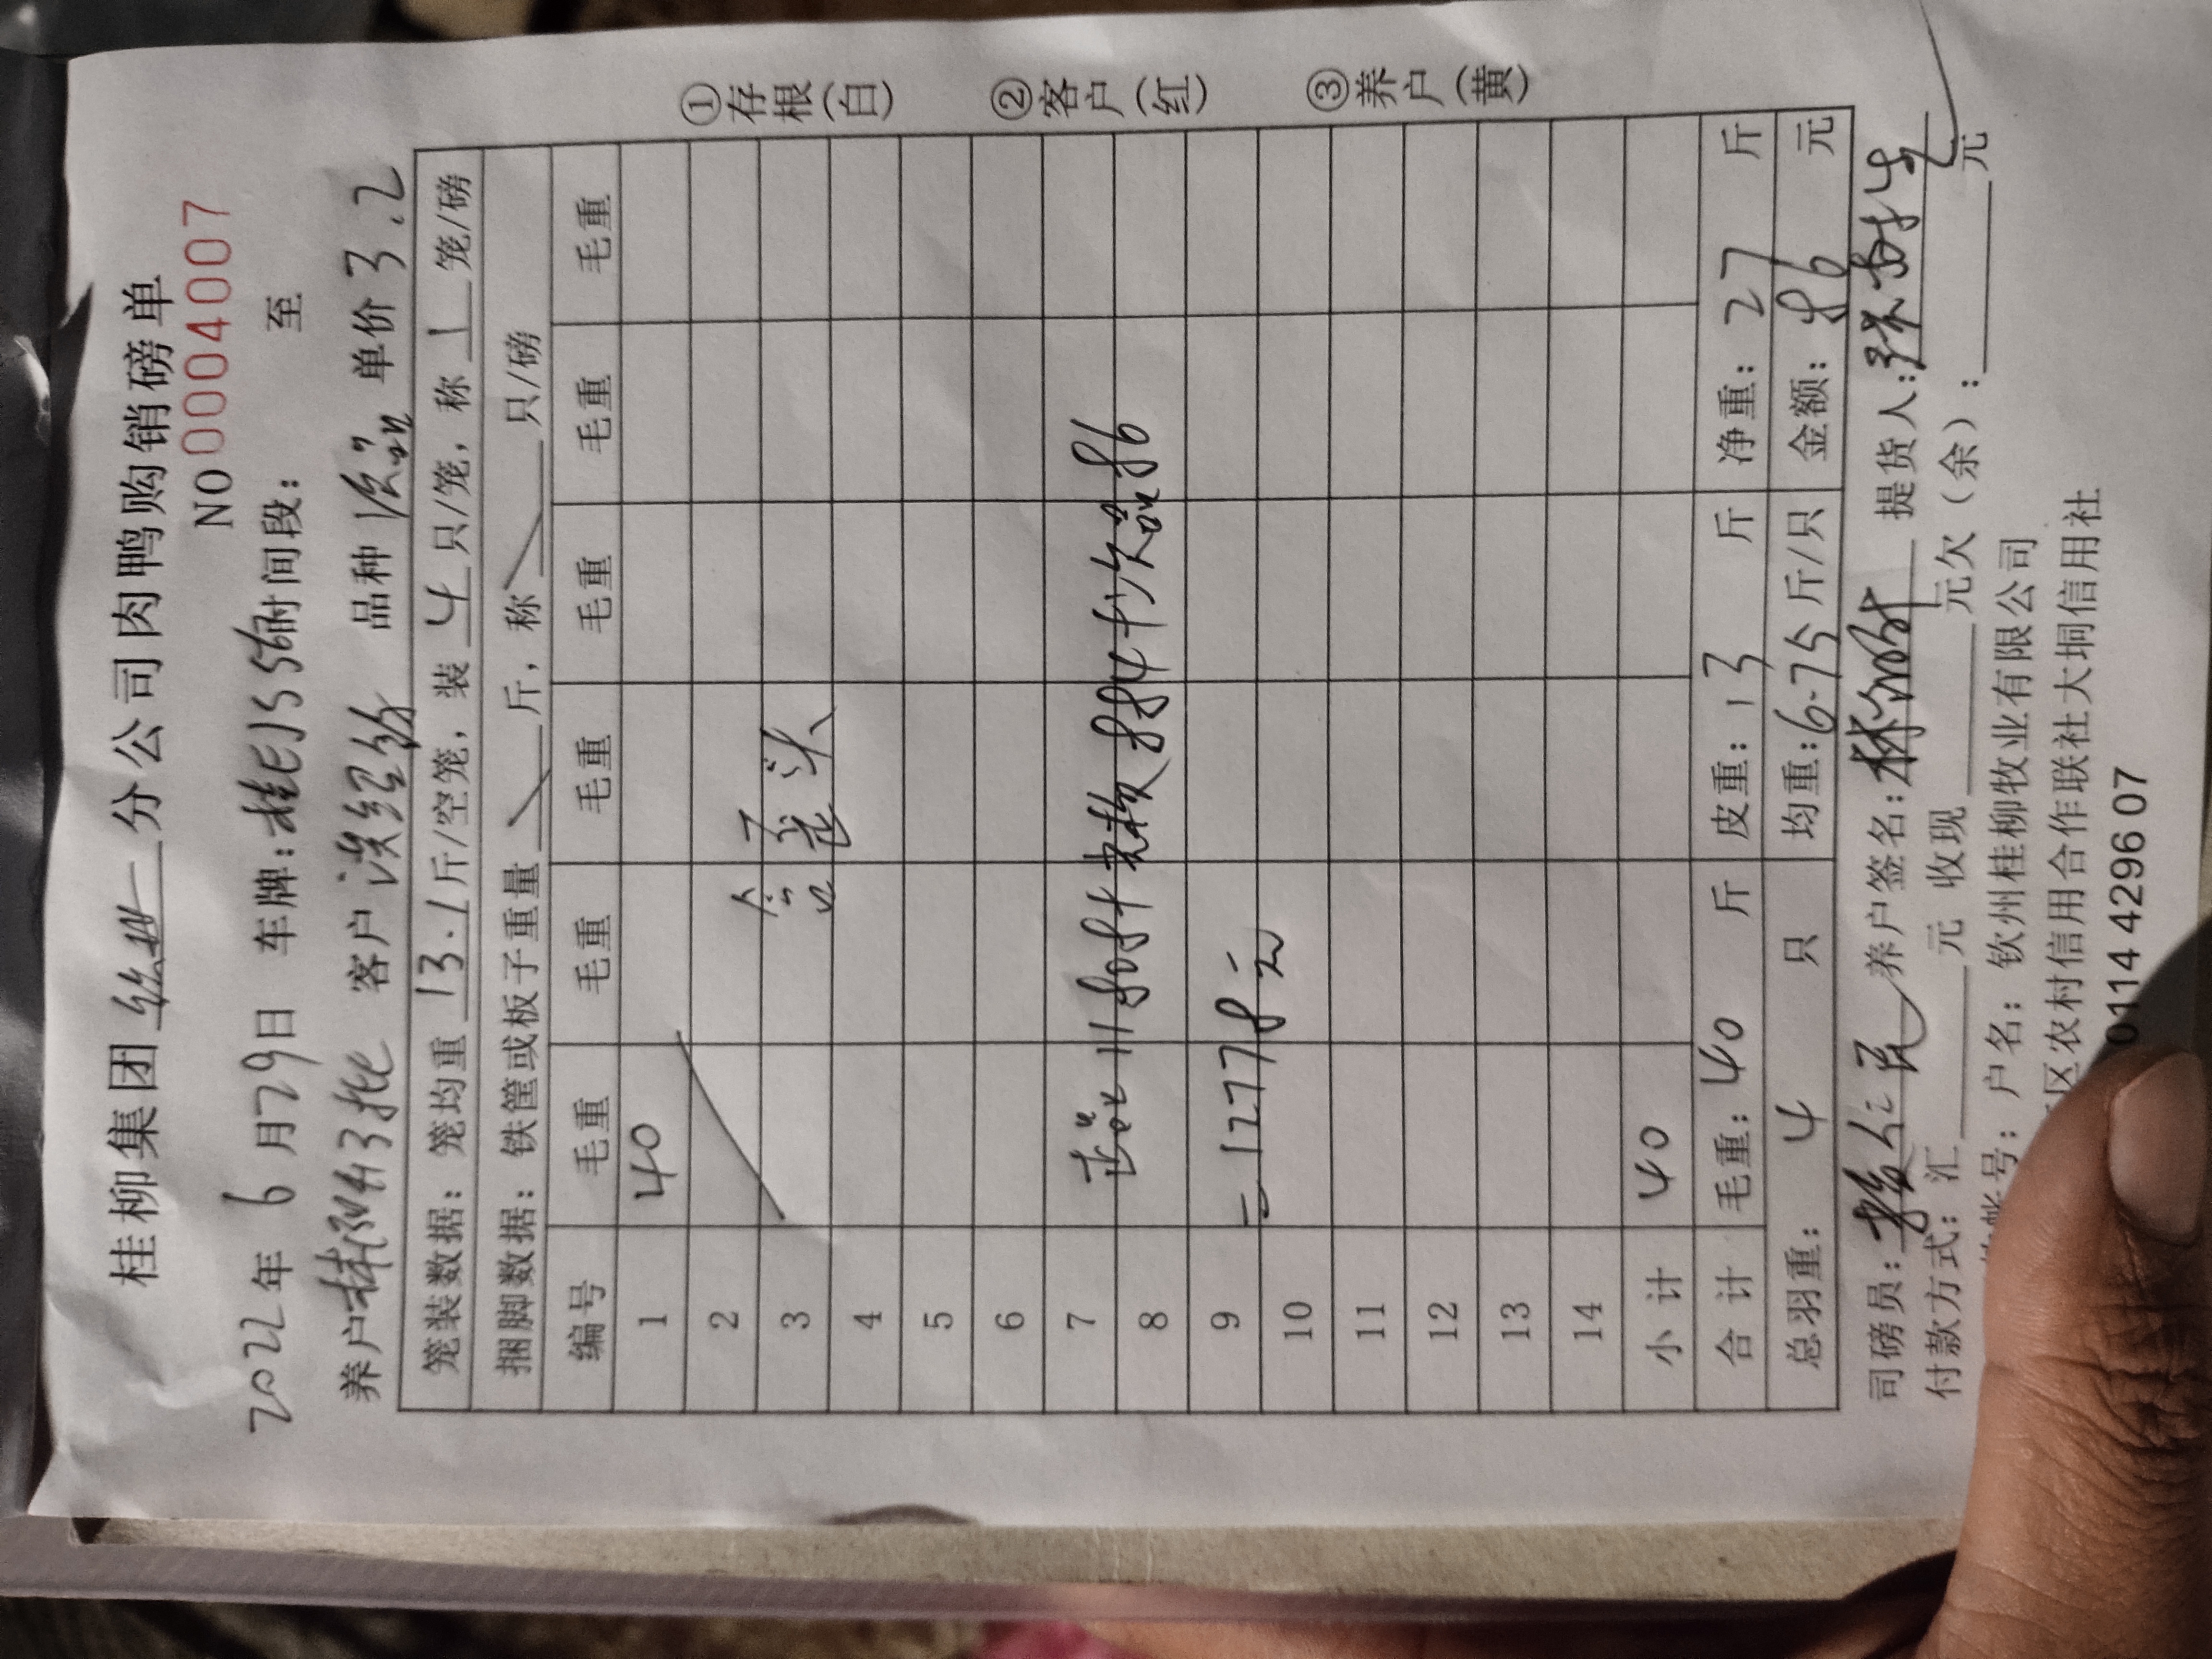 桂柳集团 分公司肉鸭购销磅单
NO 0004007
2022年 6月29日 车牌:桂 时间段: 至
养户 客户 品种 次品 单价 3.2
笼装数据: 笼均重 13.1 斤/空笼, 装 4 只/笼, 称 1 笼/磅
捆脚数据: 铁筐或板子重量 斤, 称 只/磅
编号 毛重 毛重 毛重 毛重 毛重 毛重
1 40
2
3 含歪头
4
5
6
7
8 正品11808+ 884+次品86
9 =12778元
10
11
12
13
14
小计 40
合计 毛重: 40 斤 皮重: 13 斤 净重: 27 斤
总羽重: 4 只 均重: 6.75 斤/只 金额: 86 元
司磅员: 养户签名: 提货人:
付款方式: 汇 元 收现 元欠(余): 元
帐号: 户名: 钦州桂柳牧业有限公司
区农村信用合作联社大垌信用社
0114 4296 07
①存根(白) ②客户(红) ③养户(黄)